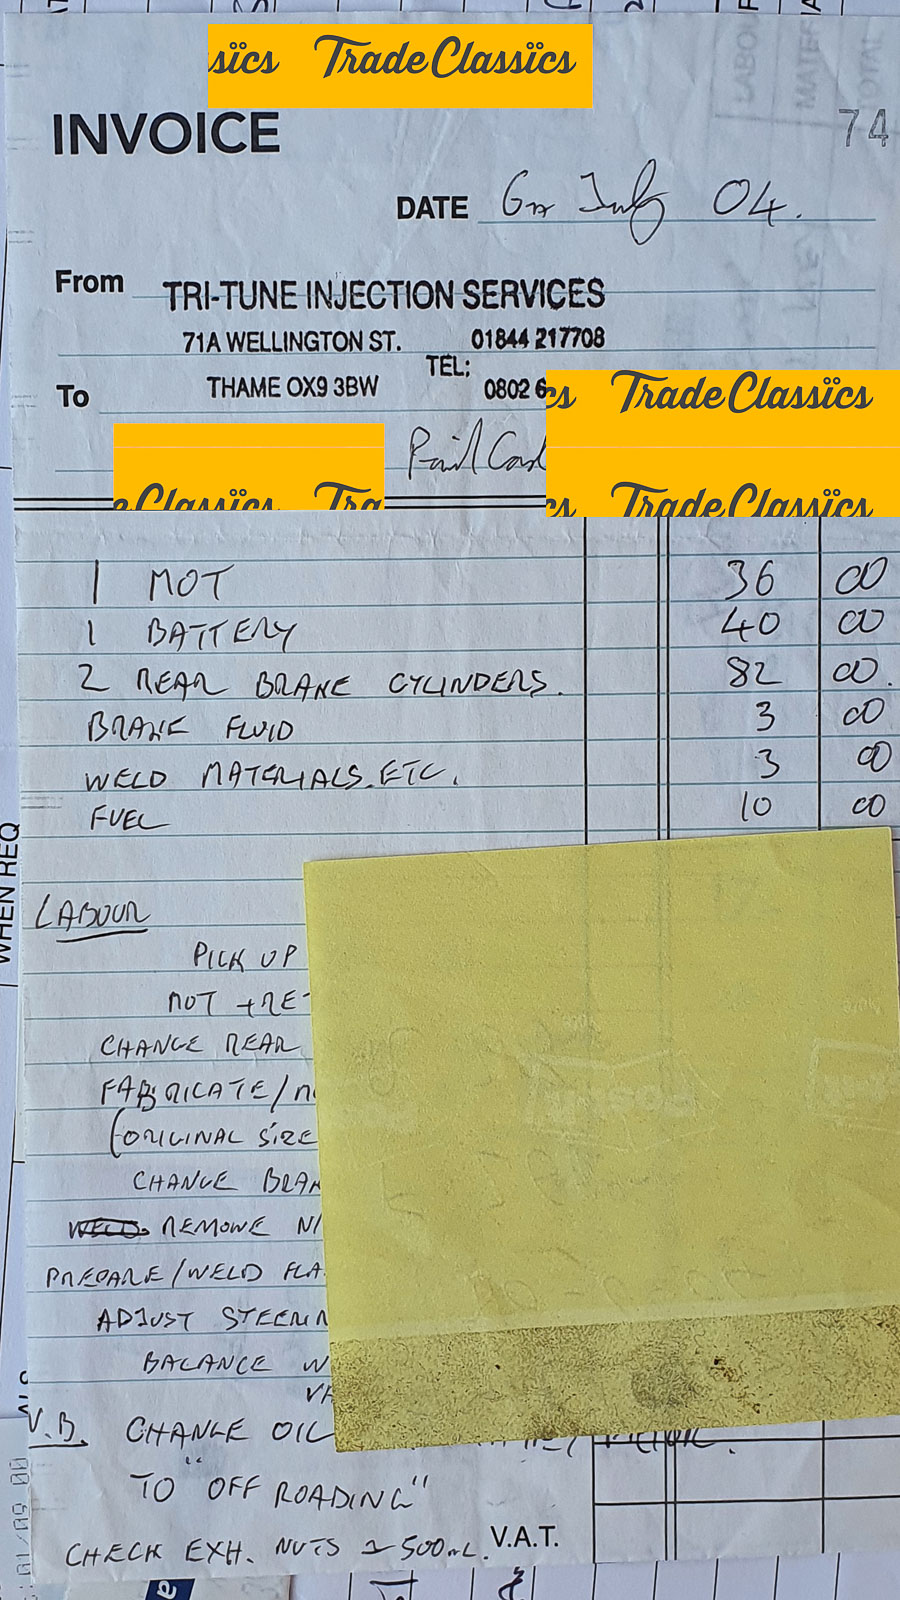 sïcs Trade Classïcs
INVOICE
74
DATE 6TH July 04.
From TRI-TUNE INJECTION SERVICES
71A WELLINGTON ST. 01844 217708
TEL:
To THAME OX9 3BW 0802 6
cs Trade Classïcs
Paid
e Classïcs Tra
cs Trade Classïcs
1 MOT 36 00
1 BATTERY 40 00
2 REAR BRAKE CYLINDERS. 82 00.
BRAKE FLUID 3 00
WELD MATERIALS.ETC. 3 00
FUEL 10 00
WHEN REQ
LABOUR
PICK UP
MOT + RE
CHANGE REAR
FABRICATE/M
(ORIGINAL SIZE
CHANGE BRAK
WELD. REMOVE N/
PREPARE/WELD FLA
ADJUST STEERIN
BALANCE W
N.B. CHANGE OIL
TO "OFF ROADING"
CHECK EXH. NUTS 500mL.
V.A.T.